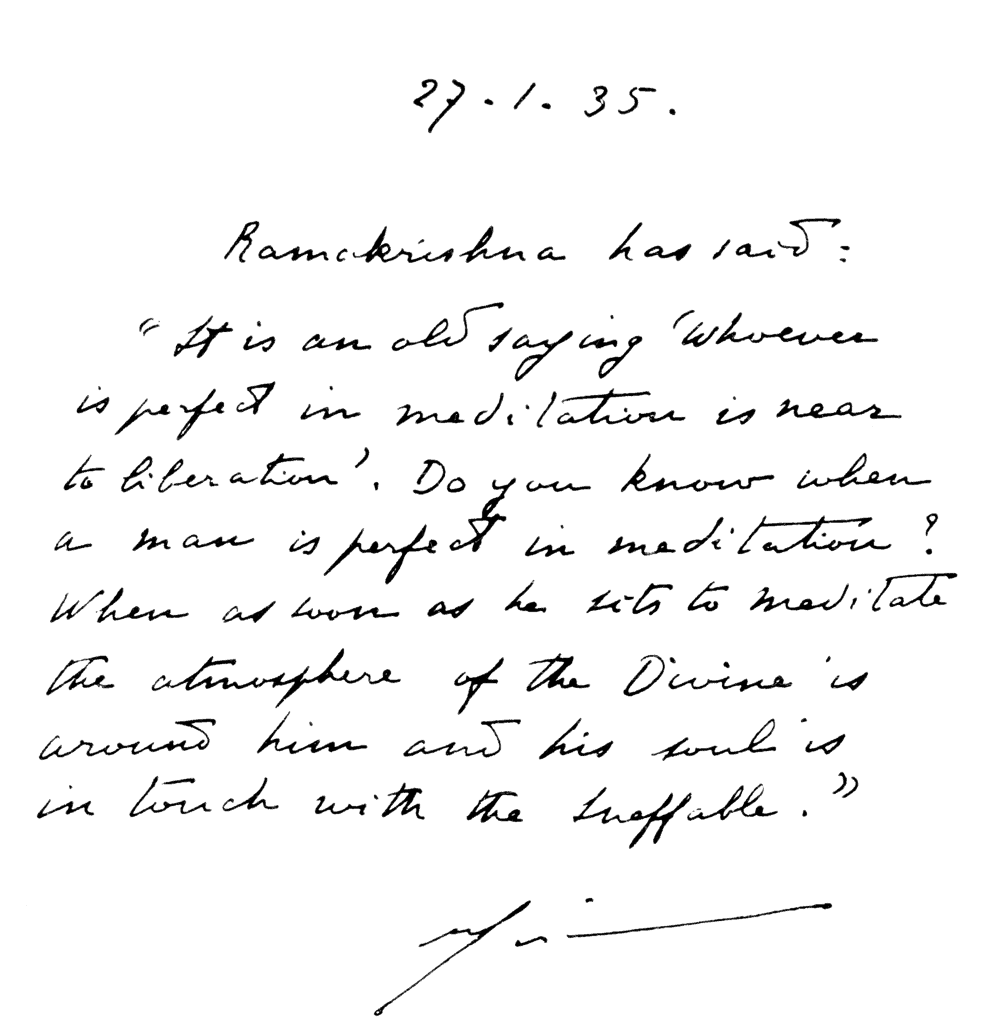 27.1.35.
Ramakrishna has said:
"It is an old saying 'Whoever
is perfect in meditation is near
to liberation'. Do you know when
a man is perfect in meditation?
When as soon as he sits to meditate
the atmosphere of the Divine is
around him and his soul is
in touch with the Ineffable."